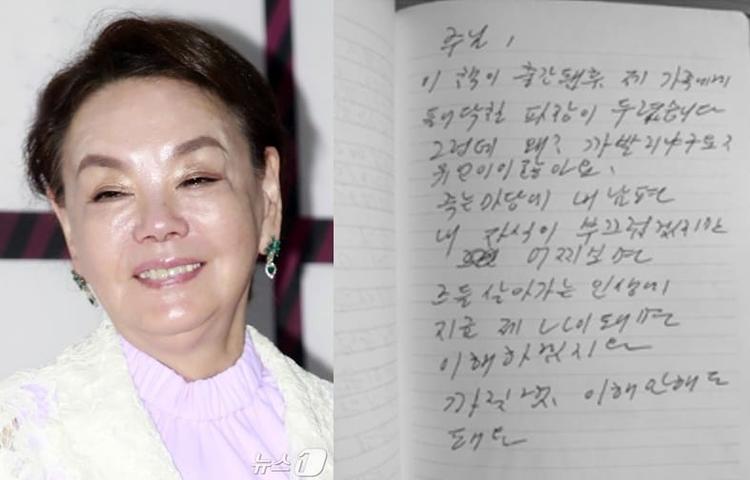 주님,
이 책이 출간됐후 제 가족에게
불어닥칠 파장이 두렵습니다
그런데 왜? 까발리냐구요?
죽는 마당에 내 남편
내 자식이 부끄럽겠지만
어찌보면
즈들 살아가는 인생에
지금 제 나이 돼면
이해하겠지요
까질껏, 이해 안해도
돼요
뉴스1